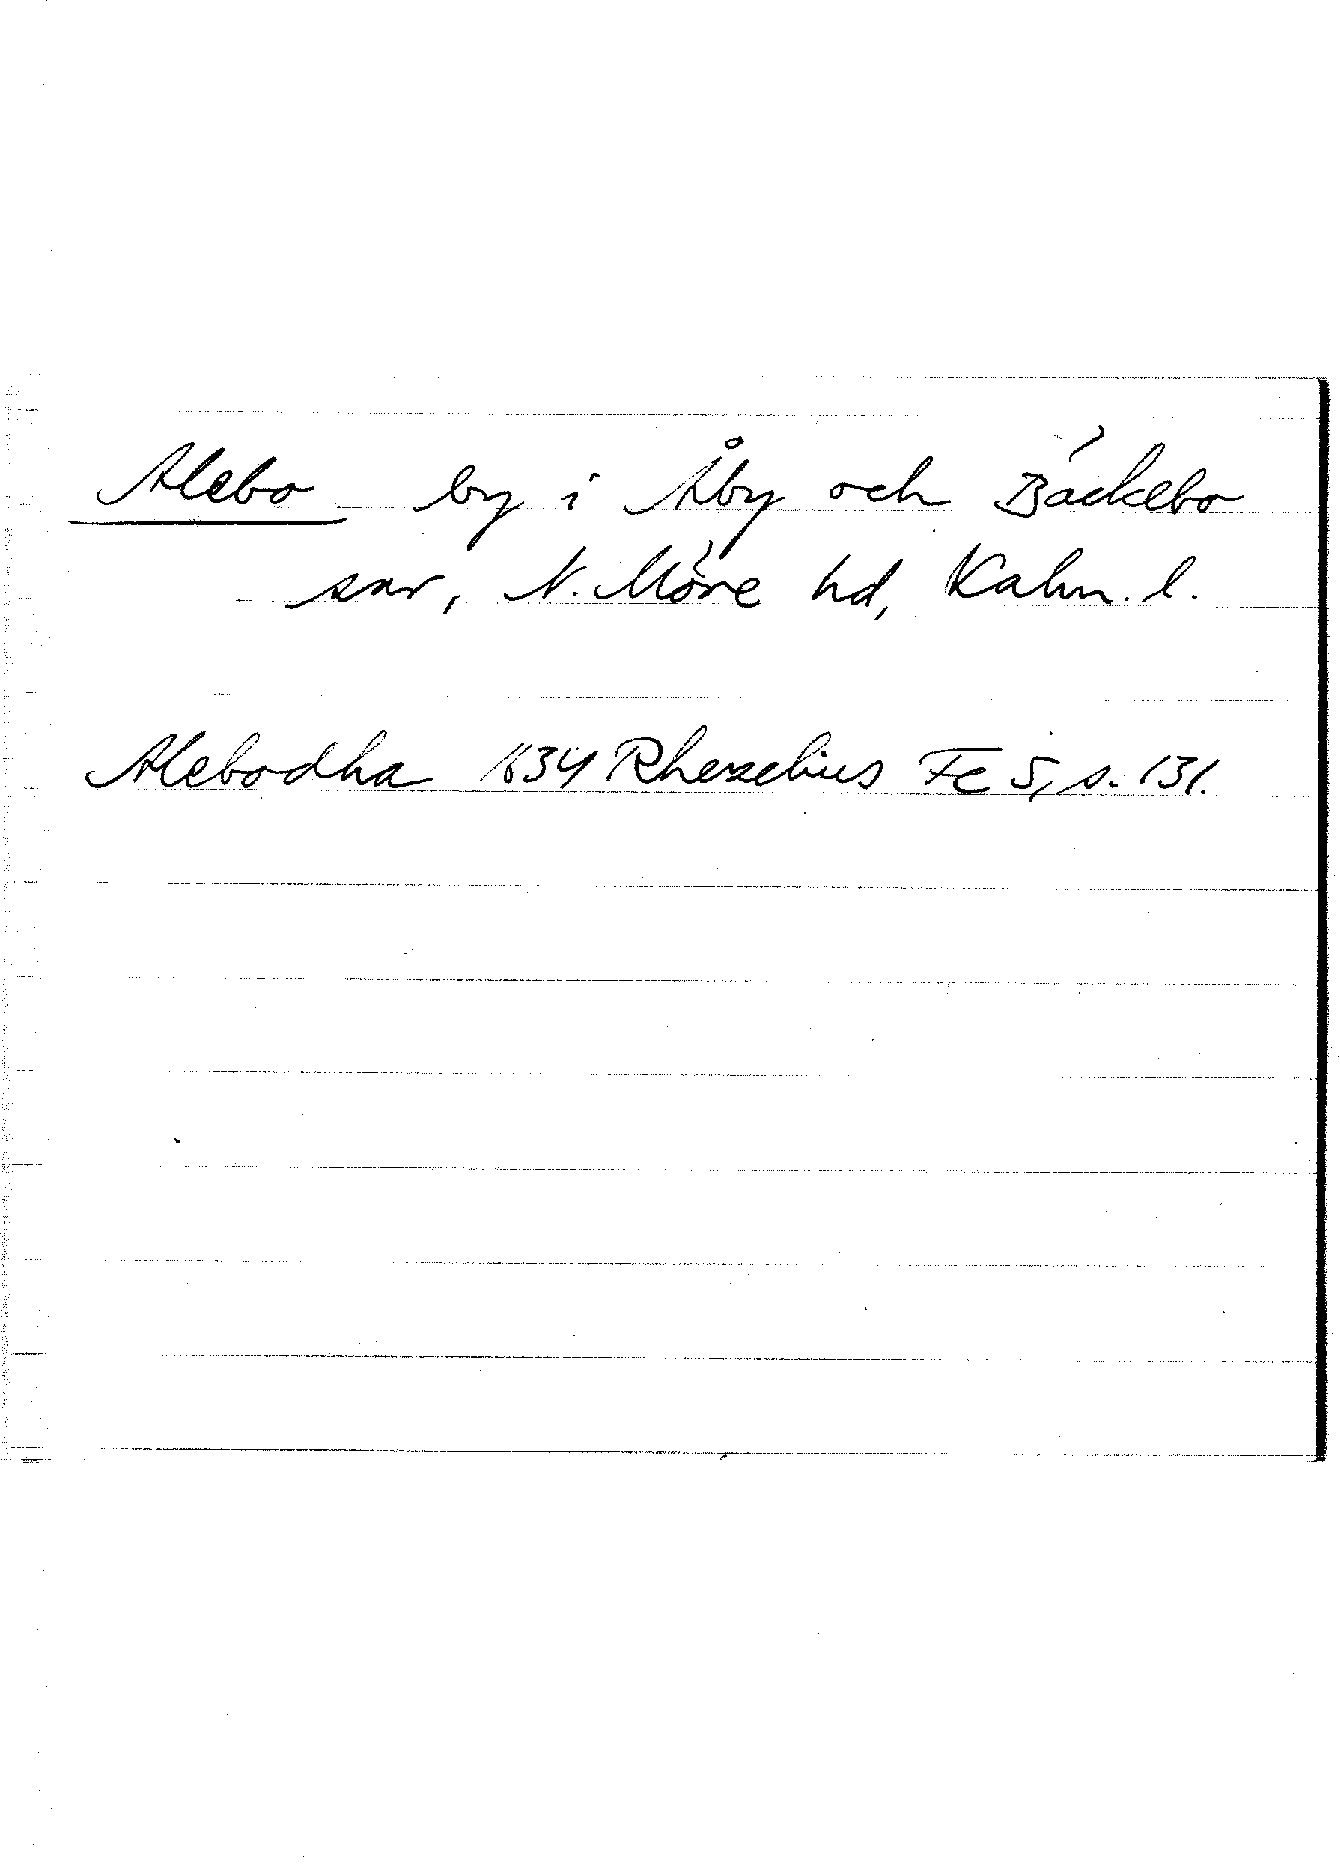 Alebo by i Åby och Bäckebo
snr, N. Möre hd, Kalm. l.
Alebodha 1634 Rhezelius Fc 5, s. 131.